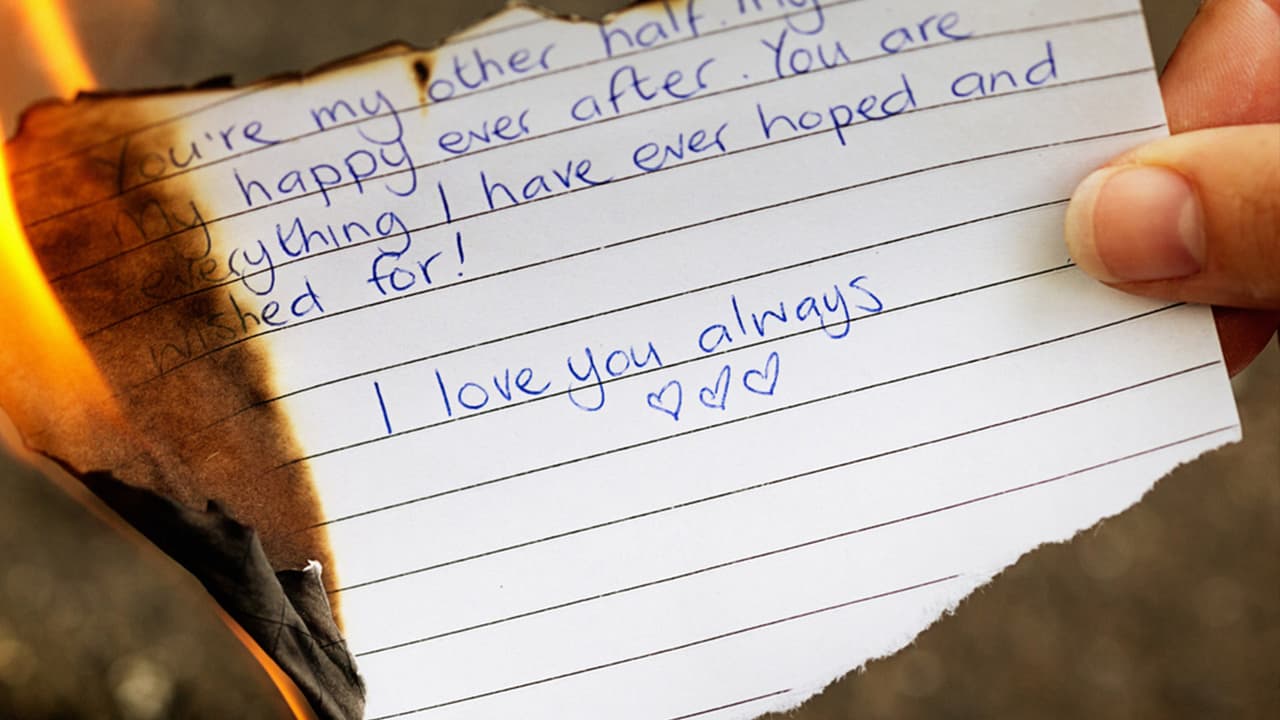 You're my other half. My
My happy ever after. You are
everything I have ever hoped and
wished for!
I love you always